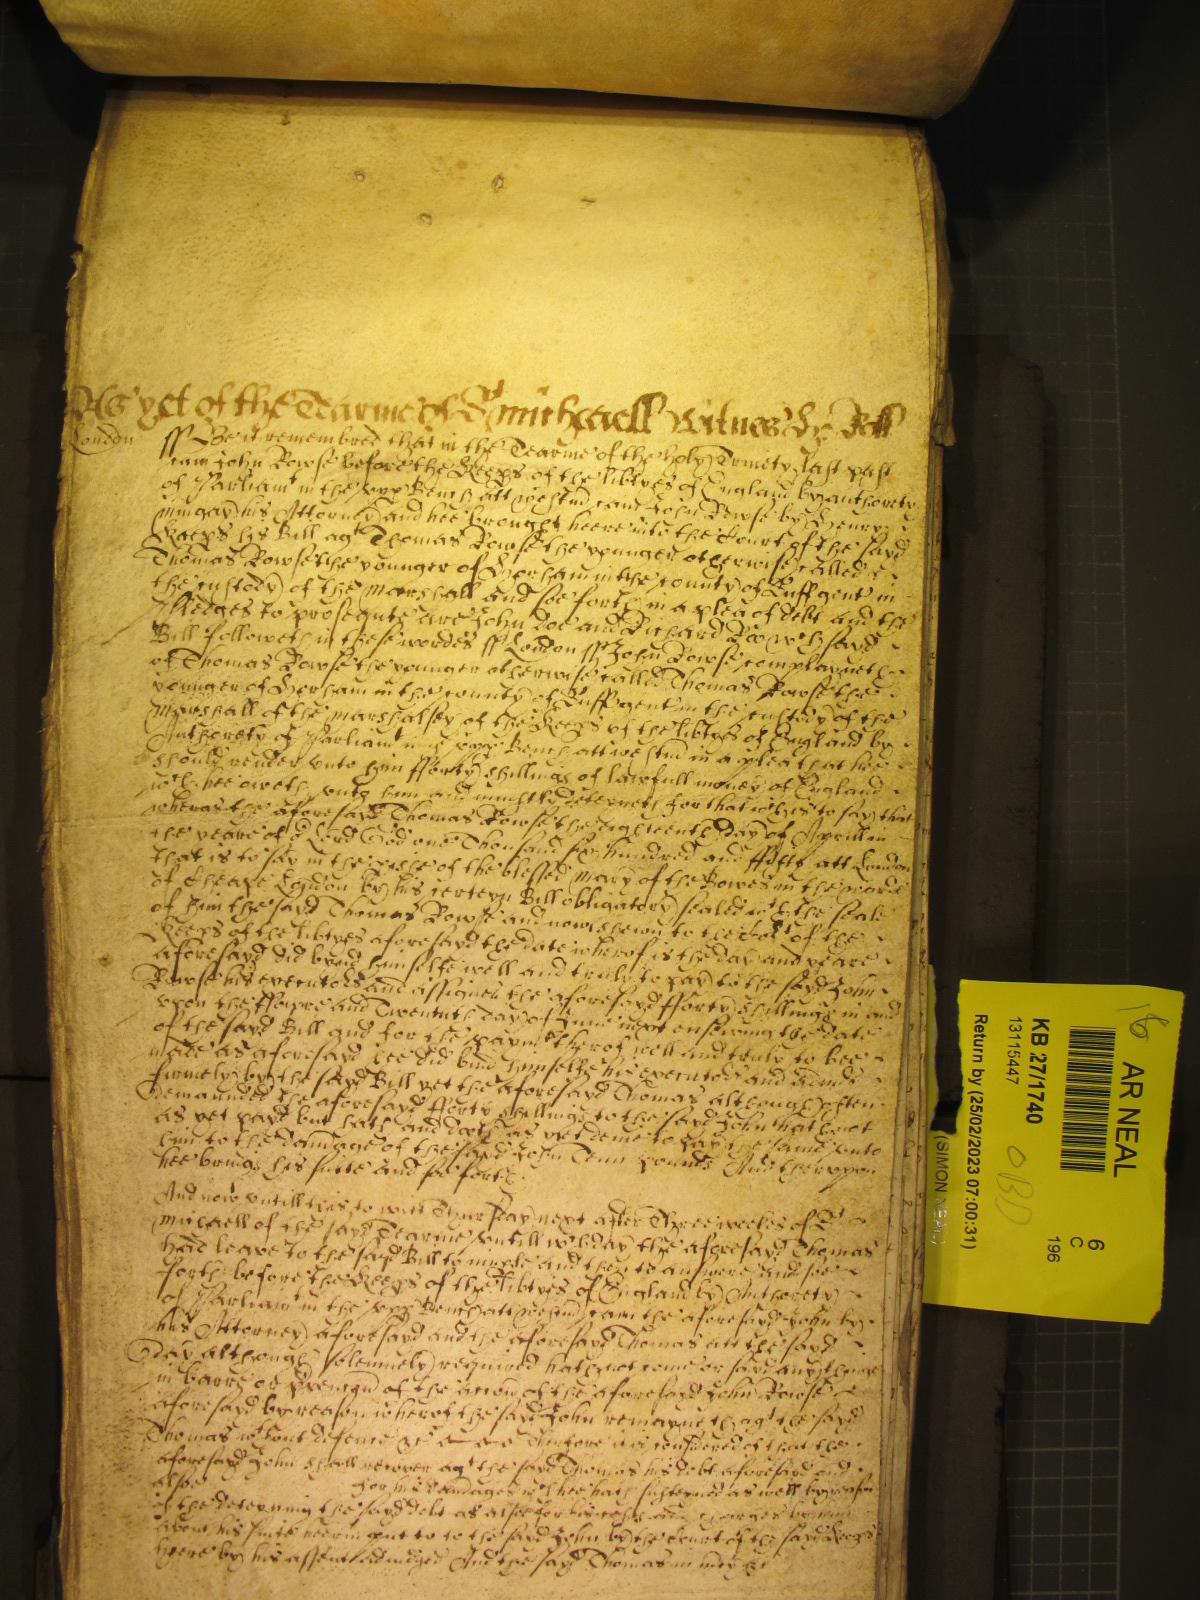 As yet of the Tearme of St Michaell Witnes Hr: Roll
London ss Be it remembred that in the Tearme of the holy Trinety last past
came John Rowse before the Keeps of the libtyes of England by authorety
of Parliamt in the upp Bench att westm came John Rowse by Henry
mingay his Attorney and hee brought heere into the Court of the sayd
Keeps his Bill agt Thomas Rowse the younger otherwise called
Thomas Rowse the younger of Horham in the county of Suff gent in
the custody of the marshall and soe forth in a plea of debt and the
Pledges to prosequte are John Doe and Richard Roo wch sayd
Bill followeth in these wordes ss London ss John Rowse complayneth
of Thomas Rowse the younger otherwise called Thomas Rowse the
younger of Horham in the county of Suff gent in the custody of the
marshall of the marshalsey of the Keeps of the libtyes of England by
Authorety of Parliamt in the upp Bench att westm in a plea that hee
should render unto him fforty shillings of lawfull money of England
wch hee oweth unto him and uniustly deteyneth for that is to say that
wheras the aforesayd Thomas Rowse the eighteenth day of Aprill in
the yeare of or Lord God one Thousand six hundred and fifty att London
that is to say in the pishe of the blessed mary of the Bowes in the warde
of Cheape London by his certeyn Bill obligatory sealed wth the seale
of him the sayd Thomas Rowse and now shewn to the Court of the
Keeps of the libtyes aforesayd the date wherof is the day and yeare
aforesayd did bynd himselfe well and truly to pay to the sayd John
Rowse his executors and assignes the aforesayd fforty shillings in and
upon the ffowre and Twenteth day of June next ensewing the date
of the sayd Bill and for the paymt therof well and truly to bee
made as aforesayd hee did bind himselfe his executors and admīs
firmely by the sayd Bill yet the aforesayd Thomas although often
demaunded the aforesayd fforty shillings to the sayd John hath not
as yet payd but hath and doth as yet denie to pay the same unto
him to the damage of the sayd John Tenn pounds And therupon
hee brings his suite and soe forth
And now untill this to witt Thursday next after Three weekes of St
michaell of the sayd Tearme untill wch day the aforesayd Thomas
had leave to the sayd Bill to imple and then to answere and soe
forth before the Keeps of the libtyes of England by Authorety
of Parliamt in the upp Bench att westm came the aforesayd John by
his Attorney aforesayd and the aforesayd Thomas att the sayd
day although solemnely required hath not come or sayd any thinge
in barre or of the action of the aforesayd John Rowse
aforesayd by reason wherof the sayd John remayneth agt the sayd
Thomas wthout defence &c Therfore it is considered of that the
aforesayd John shall recover agt the sayd Thomas his debt aforesayd and
also for his damages wch hee hath susteyned as well by reason
of the deteyning the sayd debt as also for his costs and charges by him
about his suite heerin put to to the sayd John by the Court of the sayd Keeps
heere by his assent adiudged And the sayd Thomas in mcy &c
AR NEAL
16
KB 27/1740
13115447
OBD
6
C
196
Return by (25/02/2023 07:00:31)
(SIMON NEAL)